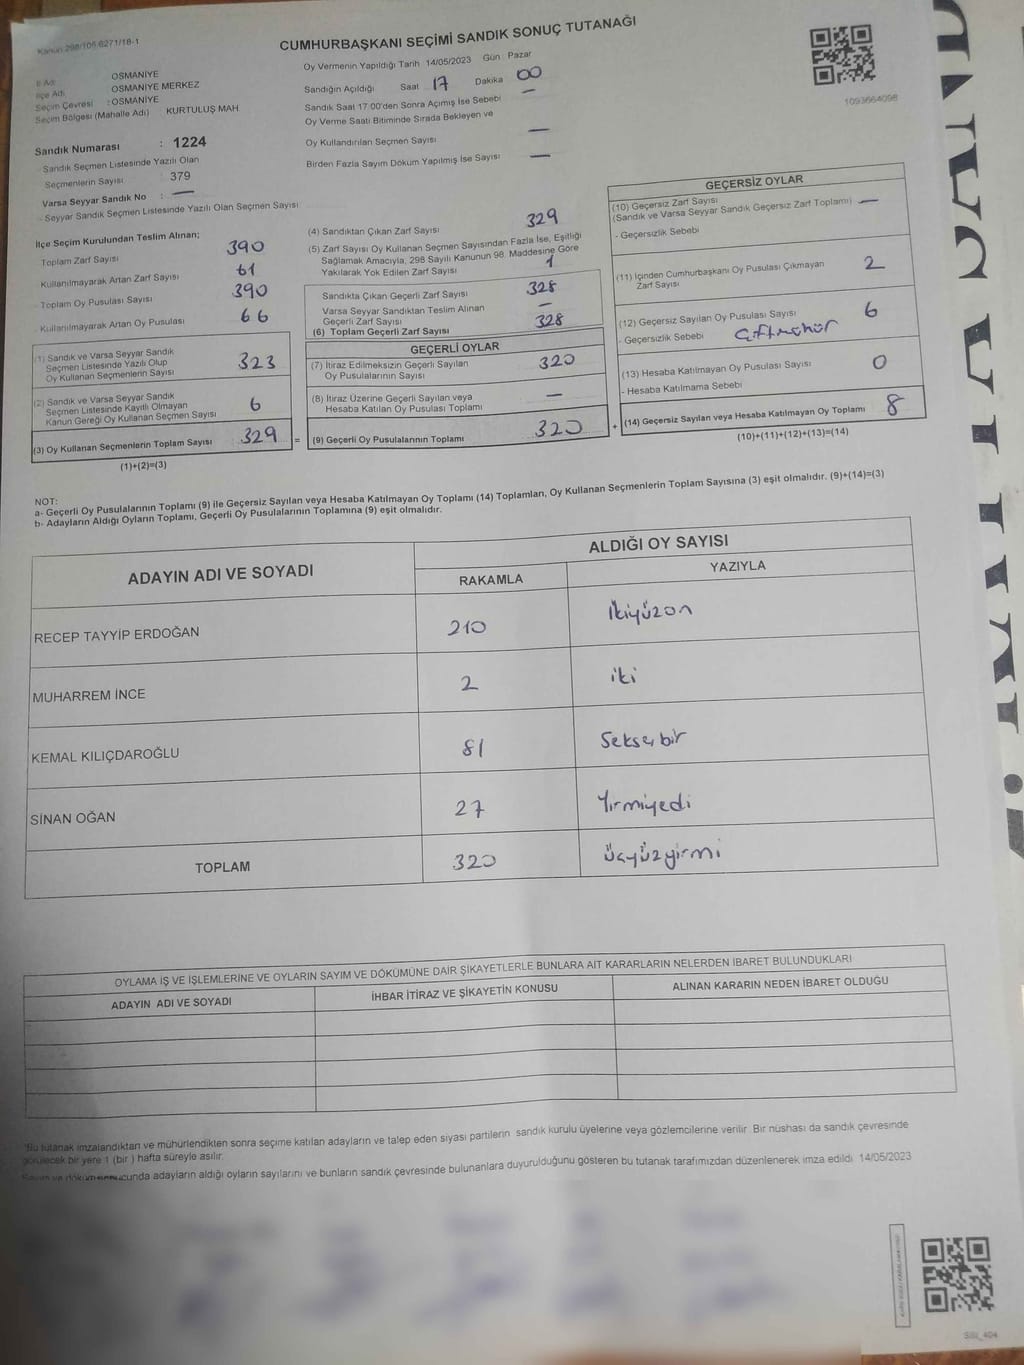 Kanun 298/105 6271/18-1
CUMHURBAŞKANI SEÇİMİ SANDIK SONUÇ TUTANAĞI
İl Adı OSMANİYE
İlçe Adı OSMANİYE MERKEZ
Seçim Çevresi : OSMANİYE
Seçim Bölgesi (Mahalle Adı) KURTULUŞ MAH.
Oy Vermenin Yapıldığı Tarih 14/05/2023 Gün : Pazar
Sandığın Açıldığı Saat 17 Dakika 00
Sandık Saat 17.00'den Sonra Açımış İse Sebebi —
Oy Verme Saati Bitiminde Sırada Bekleyen ve
Oy Kullandırılan Seçmen Sayısı —
Birden Fazla Sayım Döküm Yapılmış İse Sayısı —
1093664098
Sandık Numarası : 1224
Sandık Seçmen Listesinde Yazılı Olan
Seçmenlerin Sayısı 379
Varsa Seyyar Sandık No : —
- Seyyar Sandık Seçmen Listesinde Yazılı Olan Seçmen Sayısı
İlçe Seçim Kurulundan Teslim Alınan;
Toplam Zarf Sayısı 390
Kullanılmayarak Artan Zarf Sayısı 61
- Toplam Oy Pusulası Sayısı 390
- Kullanılmayarak Artan Oy Pusulası 66
(1) Sandık ve Varsa Seyyar Sandık
Seçmen Listesinde Yazılı Olup
Oy Kullanan Seçmenlerin Sayısı 323
(2) Sandık ve Varsa Seyyar Sandık
Seçmen Listesinde Kayıtlı Olmayan
Kanun Gereği Oy Kullanan Seçmen Sayısı 6
(3) Oy Kullanan Seçmenlerin Toplam Sayısı 329 =
(1)+(2)=(3)
(4) Sandıktan Çıkan Zarf Sayısı 329
(5) Zarf Sayısı Oy Kullanan Seçmen Sayısından Fazla İse, Eşitliği
Sağlamak Amacıyla, 298 Sayılı Kanunun 98. Maddesine Göre
Yakılarak Yok Edilen Zarf Sayısı 1
Sandıkta Çıkan Geçerli Zarf Sayısı 328
Varsa Seyyar Sandıktan Teslim Alınan
Geçerli Zarf Sayısı —
(6) Toplam Geçerli Zarf Sayısı 328
GEÇERLİ OYLAR
(7) İtiraz Edilmeksizin Geçerli Sayılan
Oy Pusulalarının Sayısı 320
(8) İtiraz Üzerine Geçerli Sayılan veya
Hesaba Katılan Oy Pusulası Toplamı —
(9) Geçerli Oy Pusulalarının Toplamı 320 +
GEÇERSİZ OYLAR
(10) Geçersiz Zarf Sayısı
(Sandık ve Varsa Seyyar Sandık Geçersiz Zarf Toplamı) —
- Geçersizlik Sebebi
(11) İçinden Cumhurbaşkanı Oy Pusulası Çıkmayan
Zarf Sayısı 2
(12) Geçersiz Sayılan Oy Pusulası Sayısı 6
- Geçersizlik Sebebi Çiftmühür
(13) Hesaba Katılmayan Oy Pusulası Sayısı 0
- Hesaba Katılmama Sebebi
(14) Geçersiz Sayılan veya Hesaba Katılmayan Oy Toplamı 8
(10)+(11)+(12)+(13)=(14)
NOT:
a- Geçerli Oy Pusulalarının Toplamı (9) ile Geçersiz Sayılan veya Hesaba Katılmayan Oy Toplamı (14) Toplamları, Oy Kullanan Seçmenlerin Toplam Sayısına (3) eşit olmalıdır. (9)+(14)=(3)
b- Adayların Aldığı Oyların Toplamı, Geçerli Oy Pusulalarının Toplamına (9) eşit olmalıdır.
ADAYIN ADI VE SOYADI ALDIĞI OY SAYISI
RAKAMLA YAZIYLA
RECEP TAYYİP ERDOĞAN 210 ikiyüzon
MUHARREM İNCE 2 iki
KEMAL KILIÇDAROĞLU 81 Seksenbir
SİNAN OĞAN 27 Yirmiyedi
TOPLAM 320 üçyüzyirmi
OYLAMA İŞ VE İŞLEMLERİNE VE OYLARIN SAYIM VE DÖKÜMÜNE DAİR ŞİKAYETLERLE BUNLARA AİT KARARLARIN NELERDEN İBARET BULUNDUKLARI
ADAYIN ADI VE SOYADI İHBAR İTİRAZ VE ŞİKAYETİN KONUSU ALINAN KARARIN NEDEN İBARET OLDUĞU
Bu tutanak imzalandıktan ve mühürlendikten sonra seçime katılan adayların ve talep eden siyasi partilerin sandık kurulu üyelerine veya gözlemcilerine verilir. Bir nüshası da sandık çevresinde
görülecek bir yere 1 (bir ) hafta süreyle asılır.
Sayım ve döküm sonucunda adayların aldığı oyların sayılarını ve bunların sandık çevresinde bulunanlara duyurulduğunu gösteren bu tutanak tarafımızdan düzenlenerek imza edildi. 14/05/2023